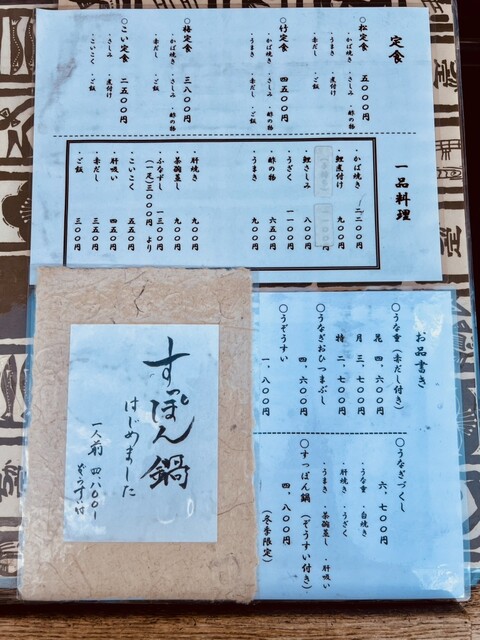 定食
○松定食 五〇〇〇円
・かば焼き ・さしみ ・酢の物
・うまき ・煮付け
・赤だし ・ご飯
○竹定食 四五〇〇円
・かば焼き ・さしみ ・酢の物
・うまき ・赤だし ・ご飯
○梅定食 三八〇〇円
・かば焼き ・さしみ ・酢の物
・赤だし ・ご飯
○こい定食 二五〇〇円
・さしみ ・煮付け
・こいこく ・ご飯
一品料理
・かば焼き 二二〇〇円
・鯉煮付け 九〇〇円
・鯉さしみ 八〇〇円
・うざく 一一〇〇円
・酢の物 六五〇円
・うまき 九〇〇円
・肝焼き 九〇〇円
・茶碗蒸し 九〇〇円
・ふなずし 一三〇〇円
(一疋)三〇〇〇円 より
・こいこく 五五〇円
・肝吸い 四五〇円
・赤だし 三五〇円
・ご飯 三〇〇円
お品書き
○うな重(赤だし付き)
花 四、六〇〇円
月 三、七〇〇円
特 二、七〇〇円
○うなぎおひつまぶし
四、六〇〇円
○うぞうすい
一、八〇〇円
○うなぎづくし
六、七〇〇円
・うな重 ・白焼き
・肝焼き ・うざく
・うまき ・茶碗蒸し ・肝吸い
○すっぽん鍋(ぞうすい付き)
四、八〇〇円
(冬季限定)
すっぽん鍋
はじめました
一人前 四、八〇〇円
ぞうすい付